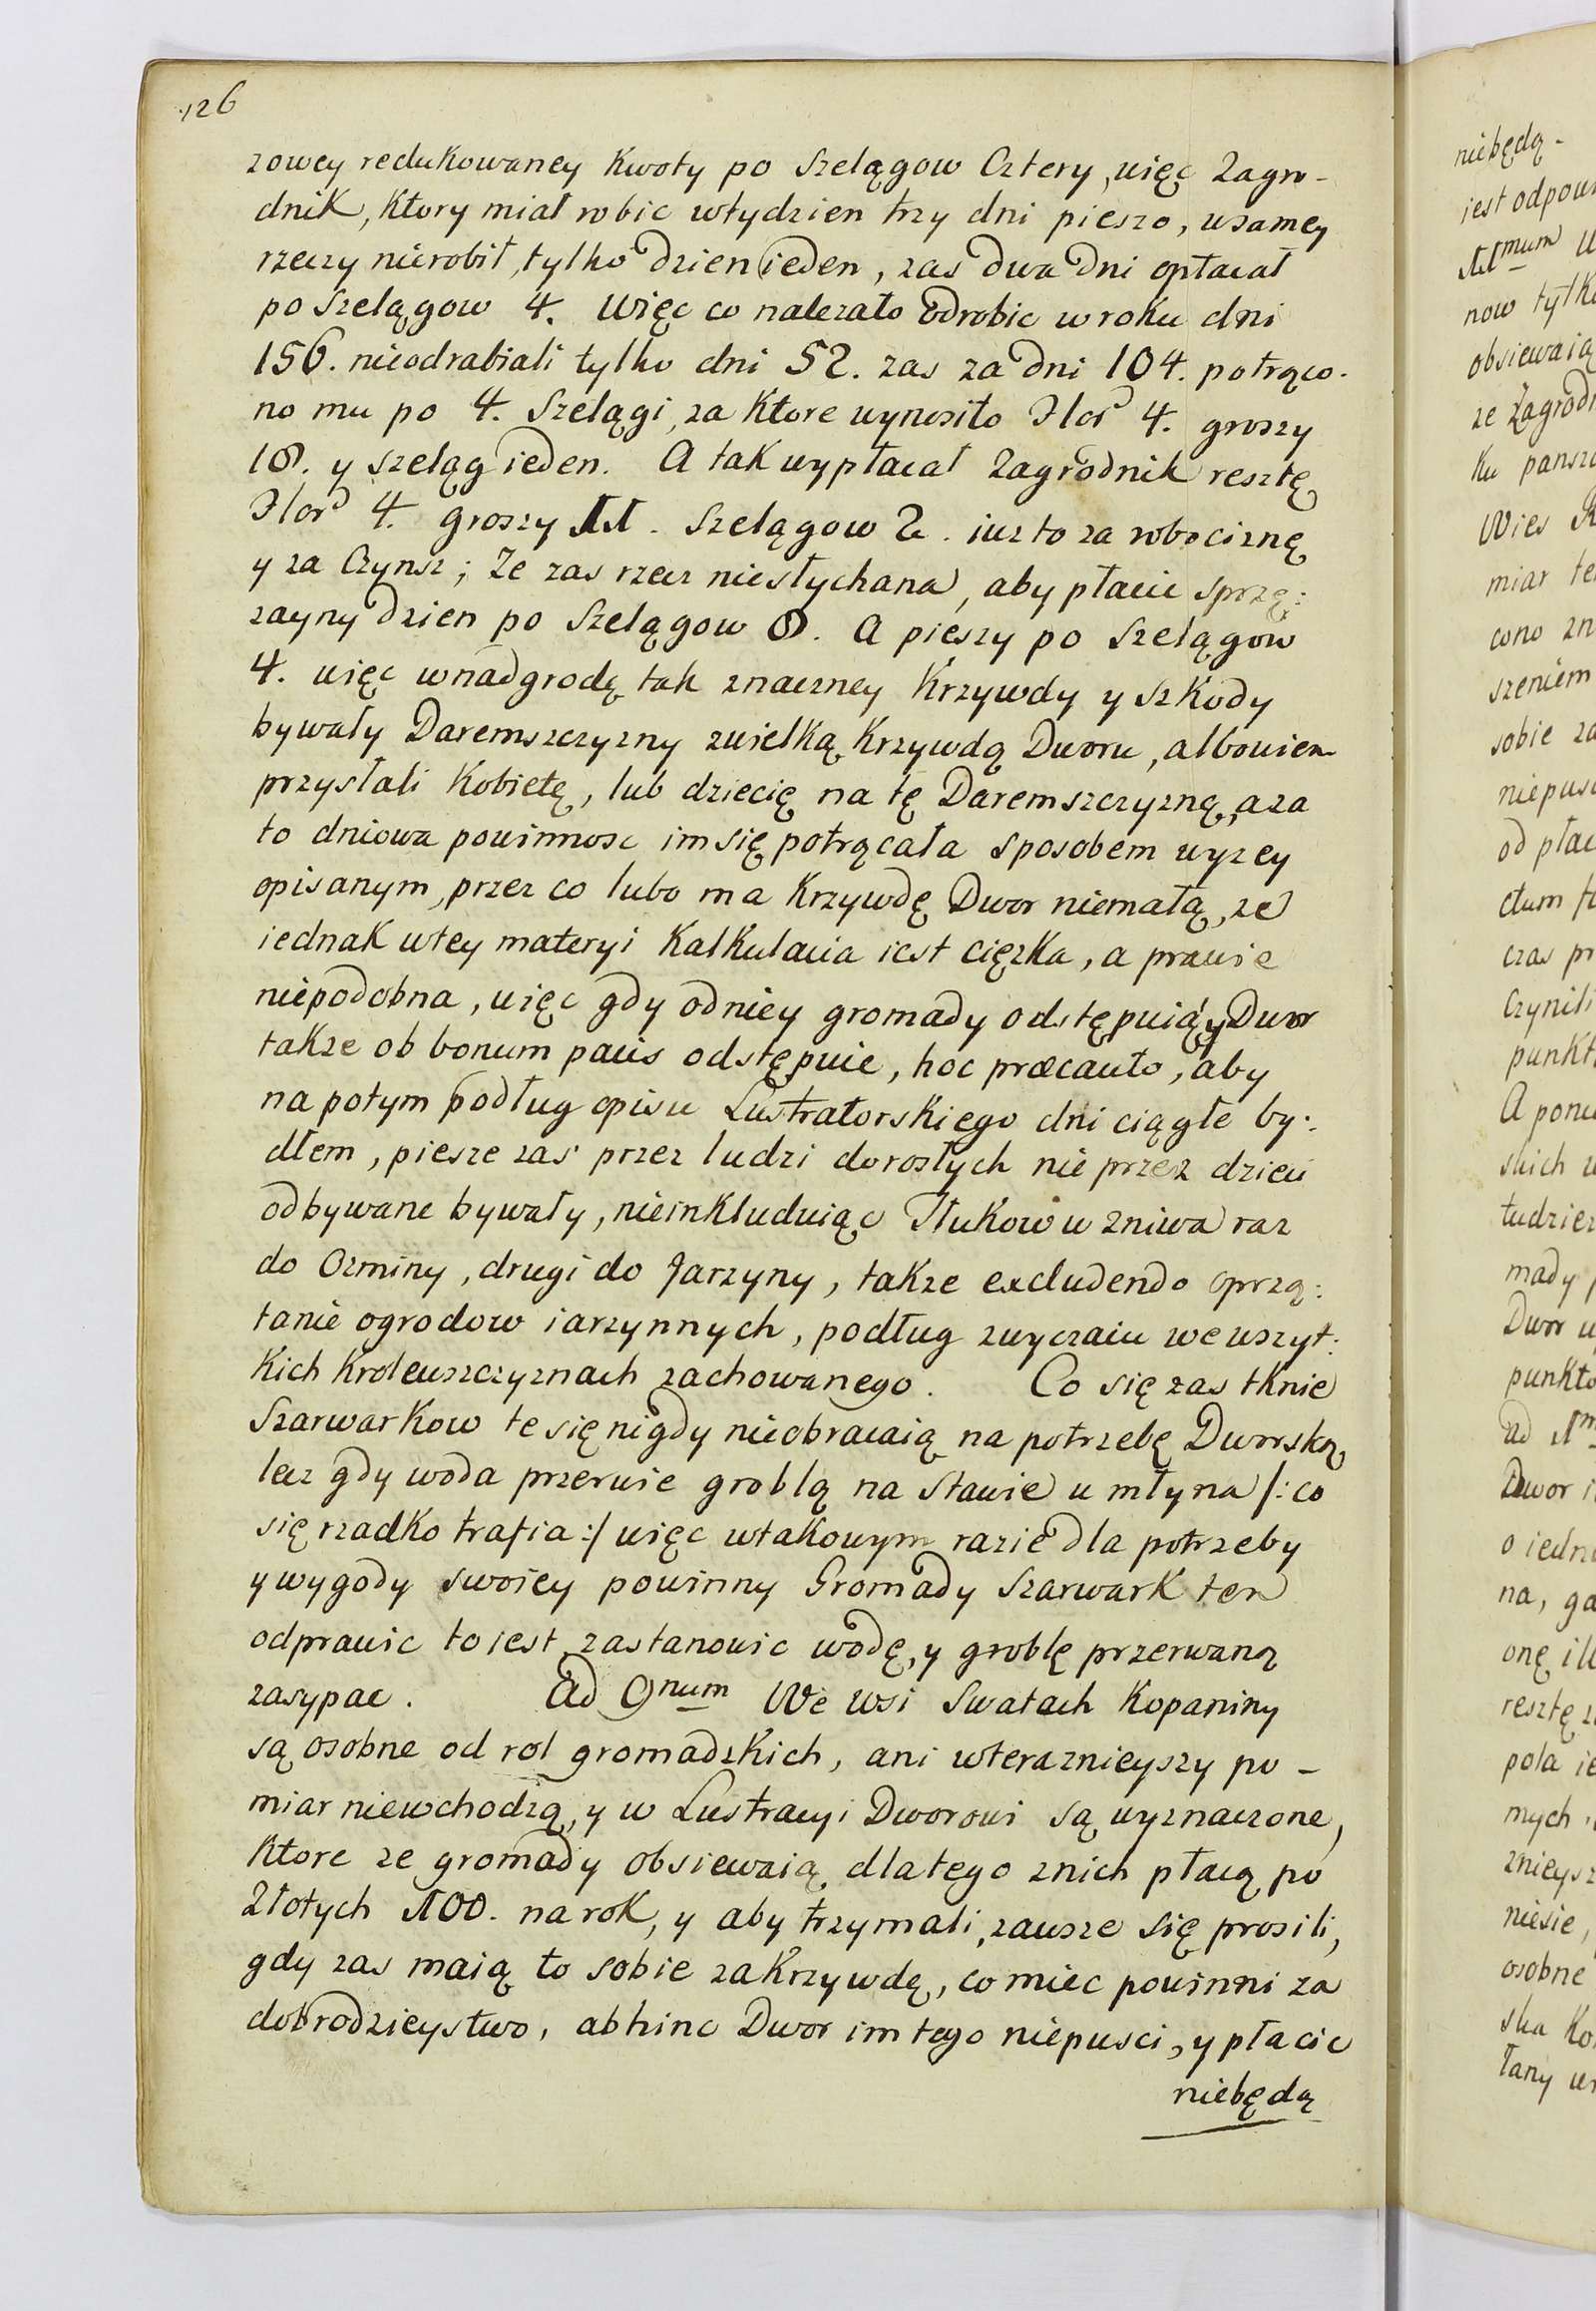 126
zowey redukowaney kwoty po Szelągow Cztery, więc Zagro-
dnik, ktory miał robic wtydzien trzy dni pieszo, wsamey
rzeczy nierobił, tylko dzien ieden, zas dwa dni opłacał
po szelągow 4. Więc co nalezało odrobic w roku dni
156. nieodrabiali tylko dni 52. zas za dni 104. potrąco-
no mu po 4. Szelągi, za ktore wynosiło Flor 4. groszy
18. y szeląg ieden. A tak wypłacał Zagrodnik resztę
Flor 4. groszy 11. Szelągow 2. iuz to za robociznę
y za Czynsz; Ze zas rzecz niesłychana, aby płacic sprzę:
zayny dzien po Szelągow 8. A pieszy po Szelągow
4. więc wnadgrodę tak znaczney Krzywdy y szkody
bywały Daremszczyzny zwielką Krzywdą Dworu, albowiem
przysłali Kobietę, lub dziecię na tę Daremszczyznę, aza
to dniowa powinnosc im się potrącała sposobem wyzey
opisanym, przez co lubo ma Krzywdę Dwor niemałą, ze
iednak wtey materyi Kalkulacia iest cięzka, a prawie
niepodobna, więc gdy odniey gromady odstępuią, y Dwor
takze ob bonum pacis odstępuie, hoc præcauto, aby
na potym podług opisu Lustratorskiego dni ciągłe by:
dłem, piesze zas przez ludzi dorosłych nie przez dzieci
odbywane bywały, nieinkluduiąc Tłukow w zniwa raz
do Oziminy, drugi do Jarzyny, takze excludendo oprzą:
tanie ogrodow iarzynnych, podług zwyczaiu we wszyt:
kich Krolewszczyznach zachowanego. Co się zas tknie
Szarwarkow te się nigdy nieobracaią na potrzebę Dworską,
lecz gdy woda przerwie groblą na Stawie u młyna /: co
się rzadko trafia :/ więc wtakowym razie dla potrzeby
y wygody swoiey powinny Gromady Szarwark ten
odprawic to iest zastanowic wodę, y groblę przerwaną
zasypac. Ad 9num We wsi Swatach Kopaniny
są osobne od rol gromadzkich, ani wteraznieyszy po-
miar niewchodzą, y w Lustracyi Dworowi są wyznaczone,
Ktore ze gromady obsiewaią dlatego znich płacą po
Złotych 100. na rok, y aby trzymali, zawsze się prosili,
gdy zas maią to sobie zakrzywdę, co miec powinni za
dobrodzieystwo, abhinc Dwor im tego niepusci, y płacic
niebędą
niebędą-
iest odpow
now tylko
obsiewaią
ze Zagrodn
Wies
miar
cono
szeniem
sobie
od płac
czas
Czynili
A
mady
Dwor
Dwor
na,
resztę
pola
mych
niesie,
osobne
łany